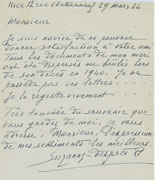 Nice 12 rue Chateauneuf 29 mars 66
Monsieur
Je suis navrée de ne pouvoir
donner satisfaction à votre ami
Tous les documents de mon mari
ont été dispersés ou brûlés lors
de son décès en 1940. Je ne
possède pas ces lettres
Je le regrette vivement
Très touchée du souvenir que
vous gardez de moi, je vous
adresse, Monsieur, l'expression
de mes sentiments les meilleurs.
Suzanne Desprès